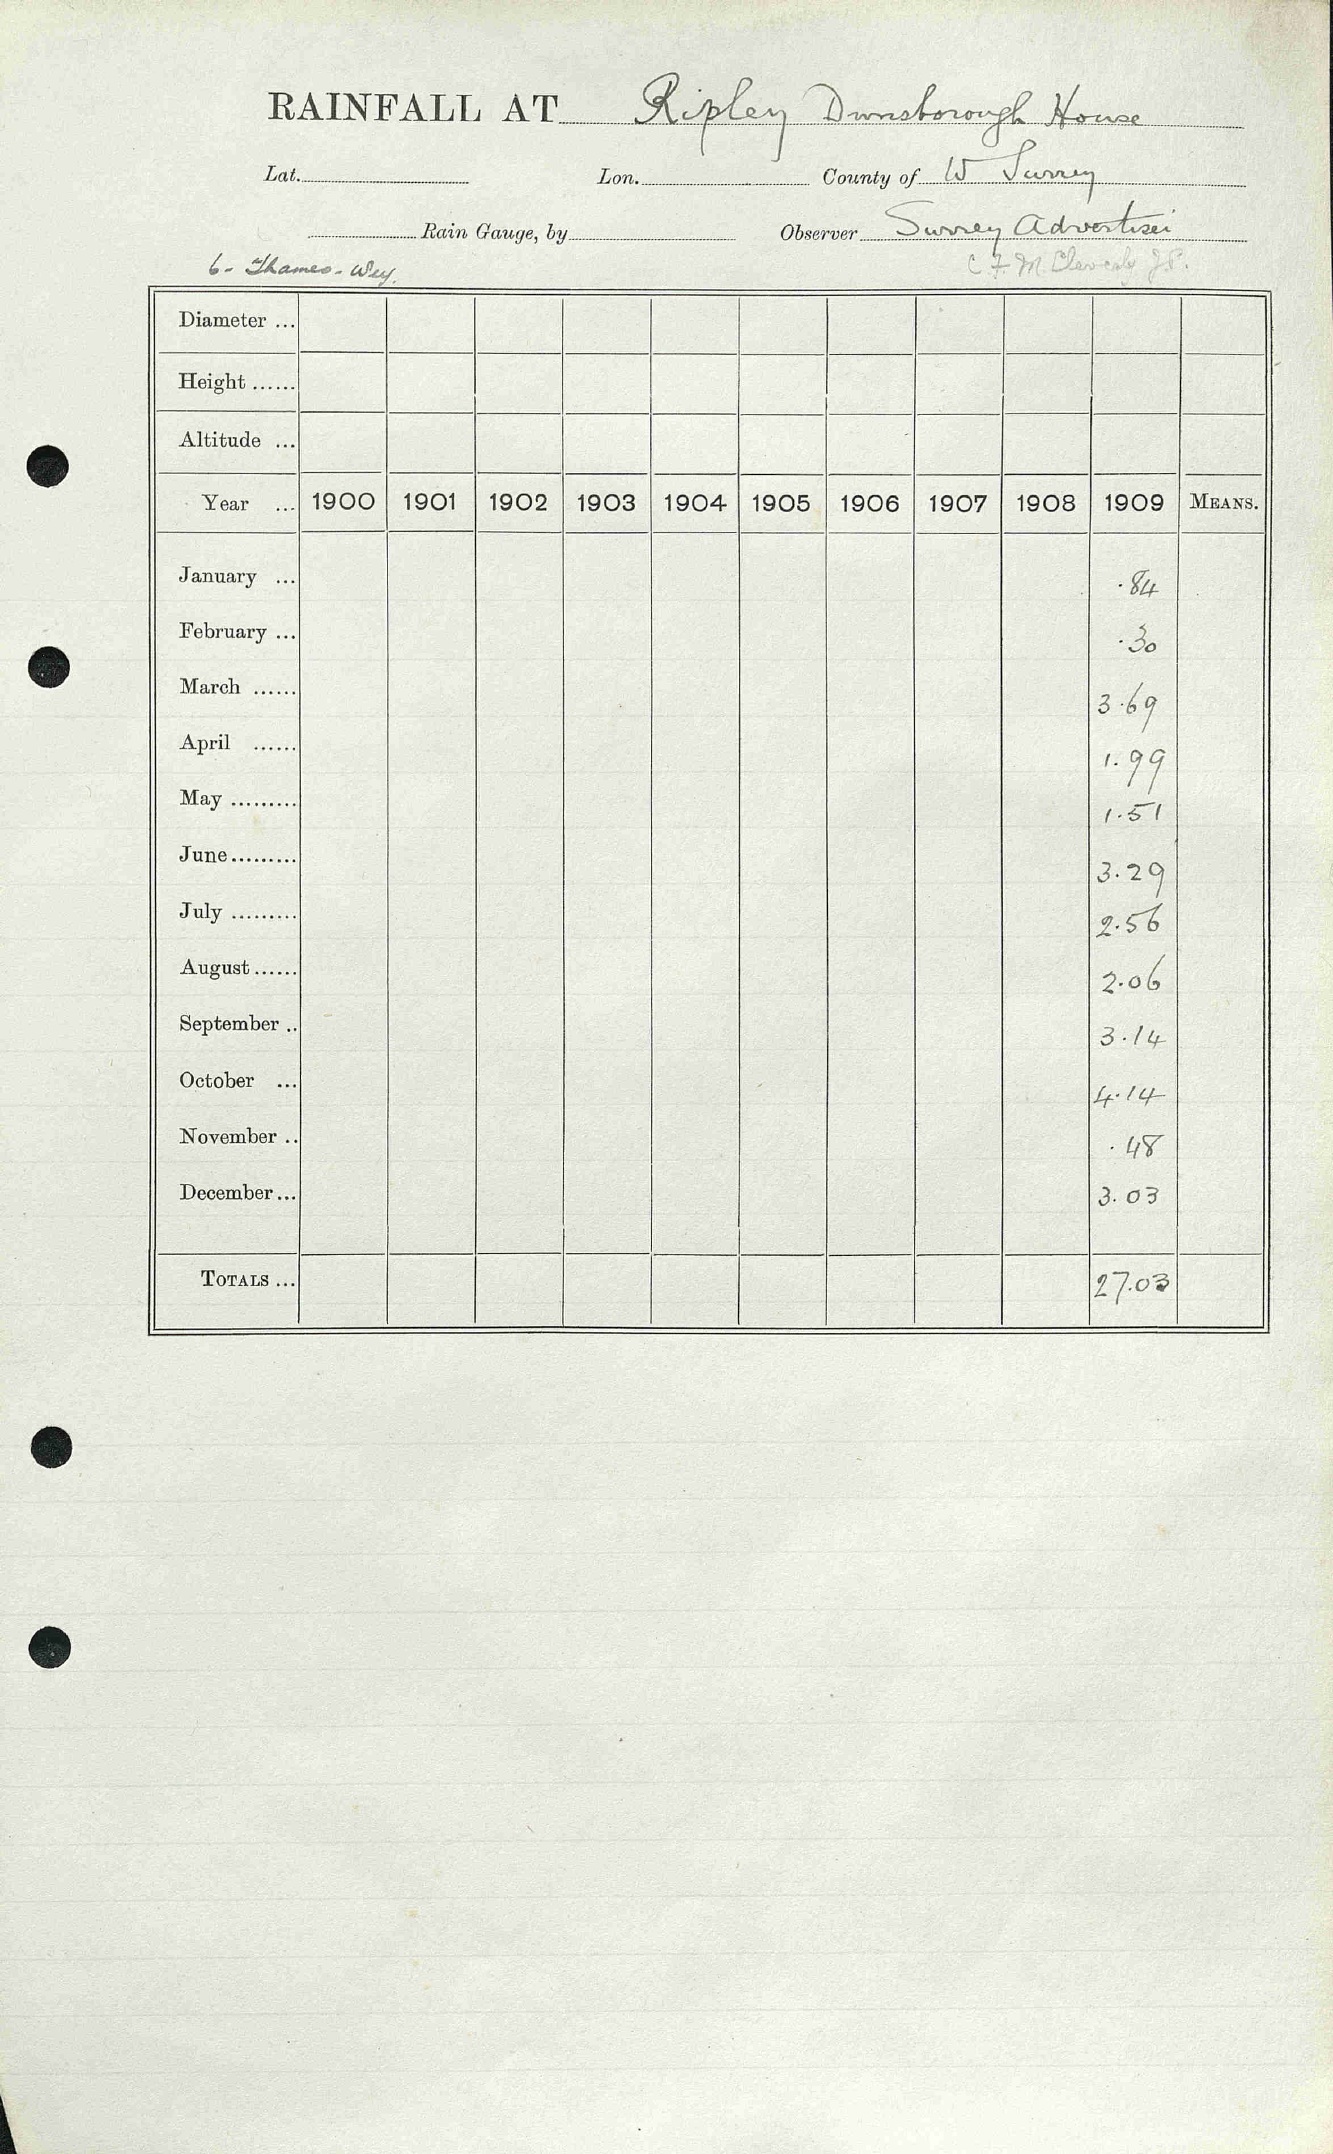 RAINFALL AT Ripley Dunsborough House
Lat. Lon. County of W Surrey
Rain Gauge, by Observer Surrey Advertiser
6 - Thames - Wey.
C F M J.P.
Diameter ...
Height ......
Altitude ...
Year ... 1900 1901 1902 1903 1904 1905 1906 1907 1908 1909 MEANS.
January ... .84
February ... .30
March ...... 3.69
April ...... 1.99
May ......... 1.51
June ......... 3.29
July ......... 2.56
August ...... 2.06
September .. 3.14
October ... 4.14
November .. .48
December ... 3.03
TOTALS ... 27.03